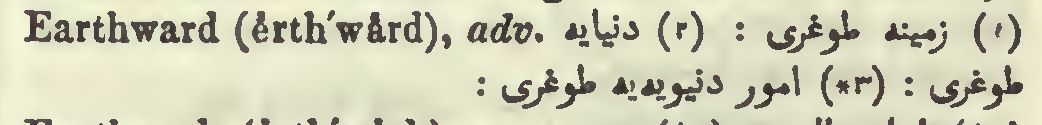 Earthward (ẽrth′wȧrd), adv. (۱) زمینه طوغری : (۲) دنیایه
طوغری : (۳*) امور دنیویه‌یه طوغری :